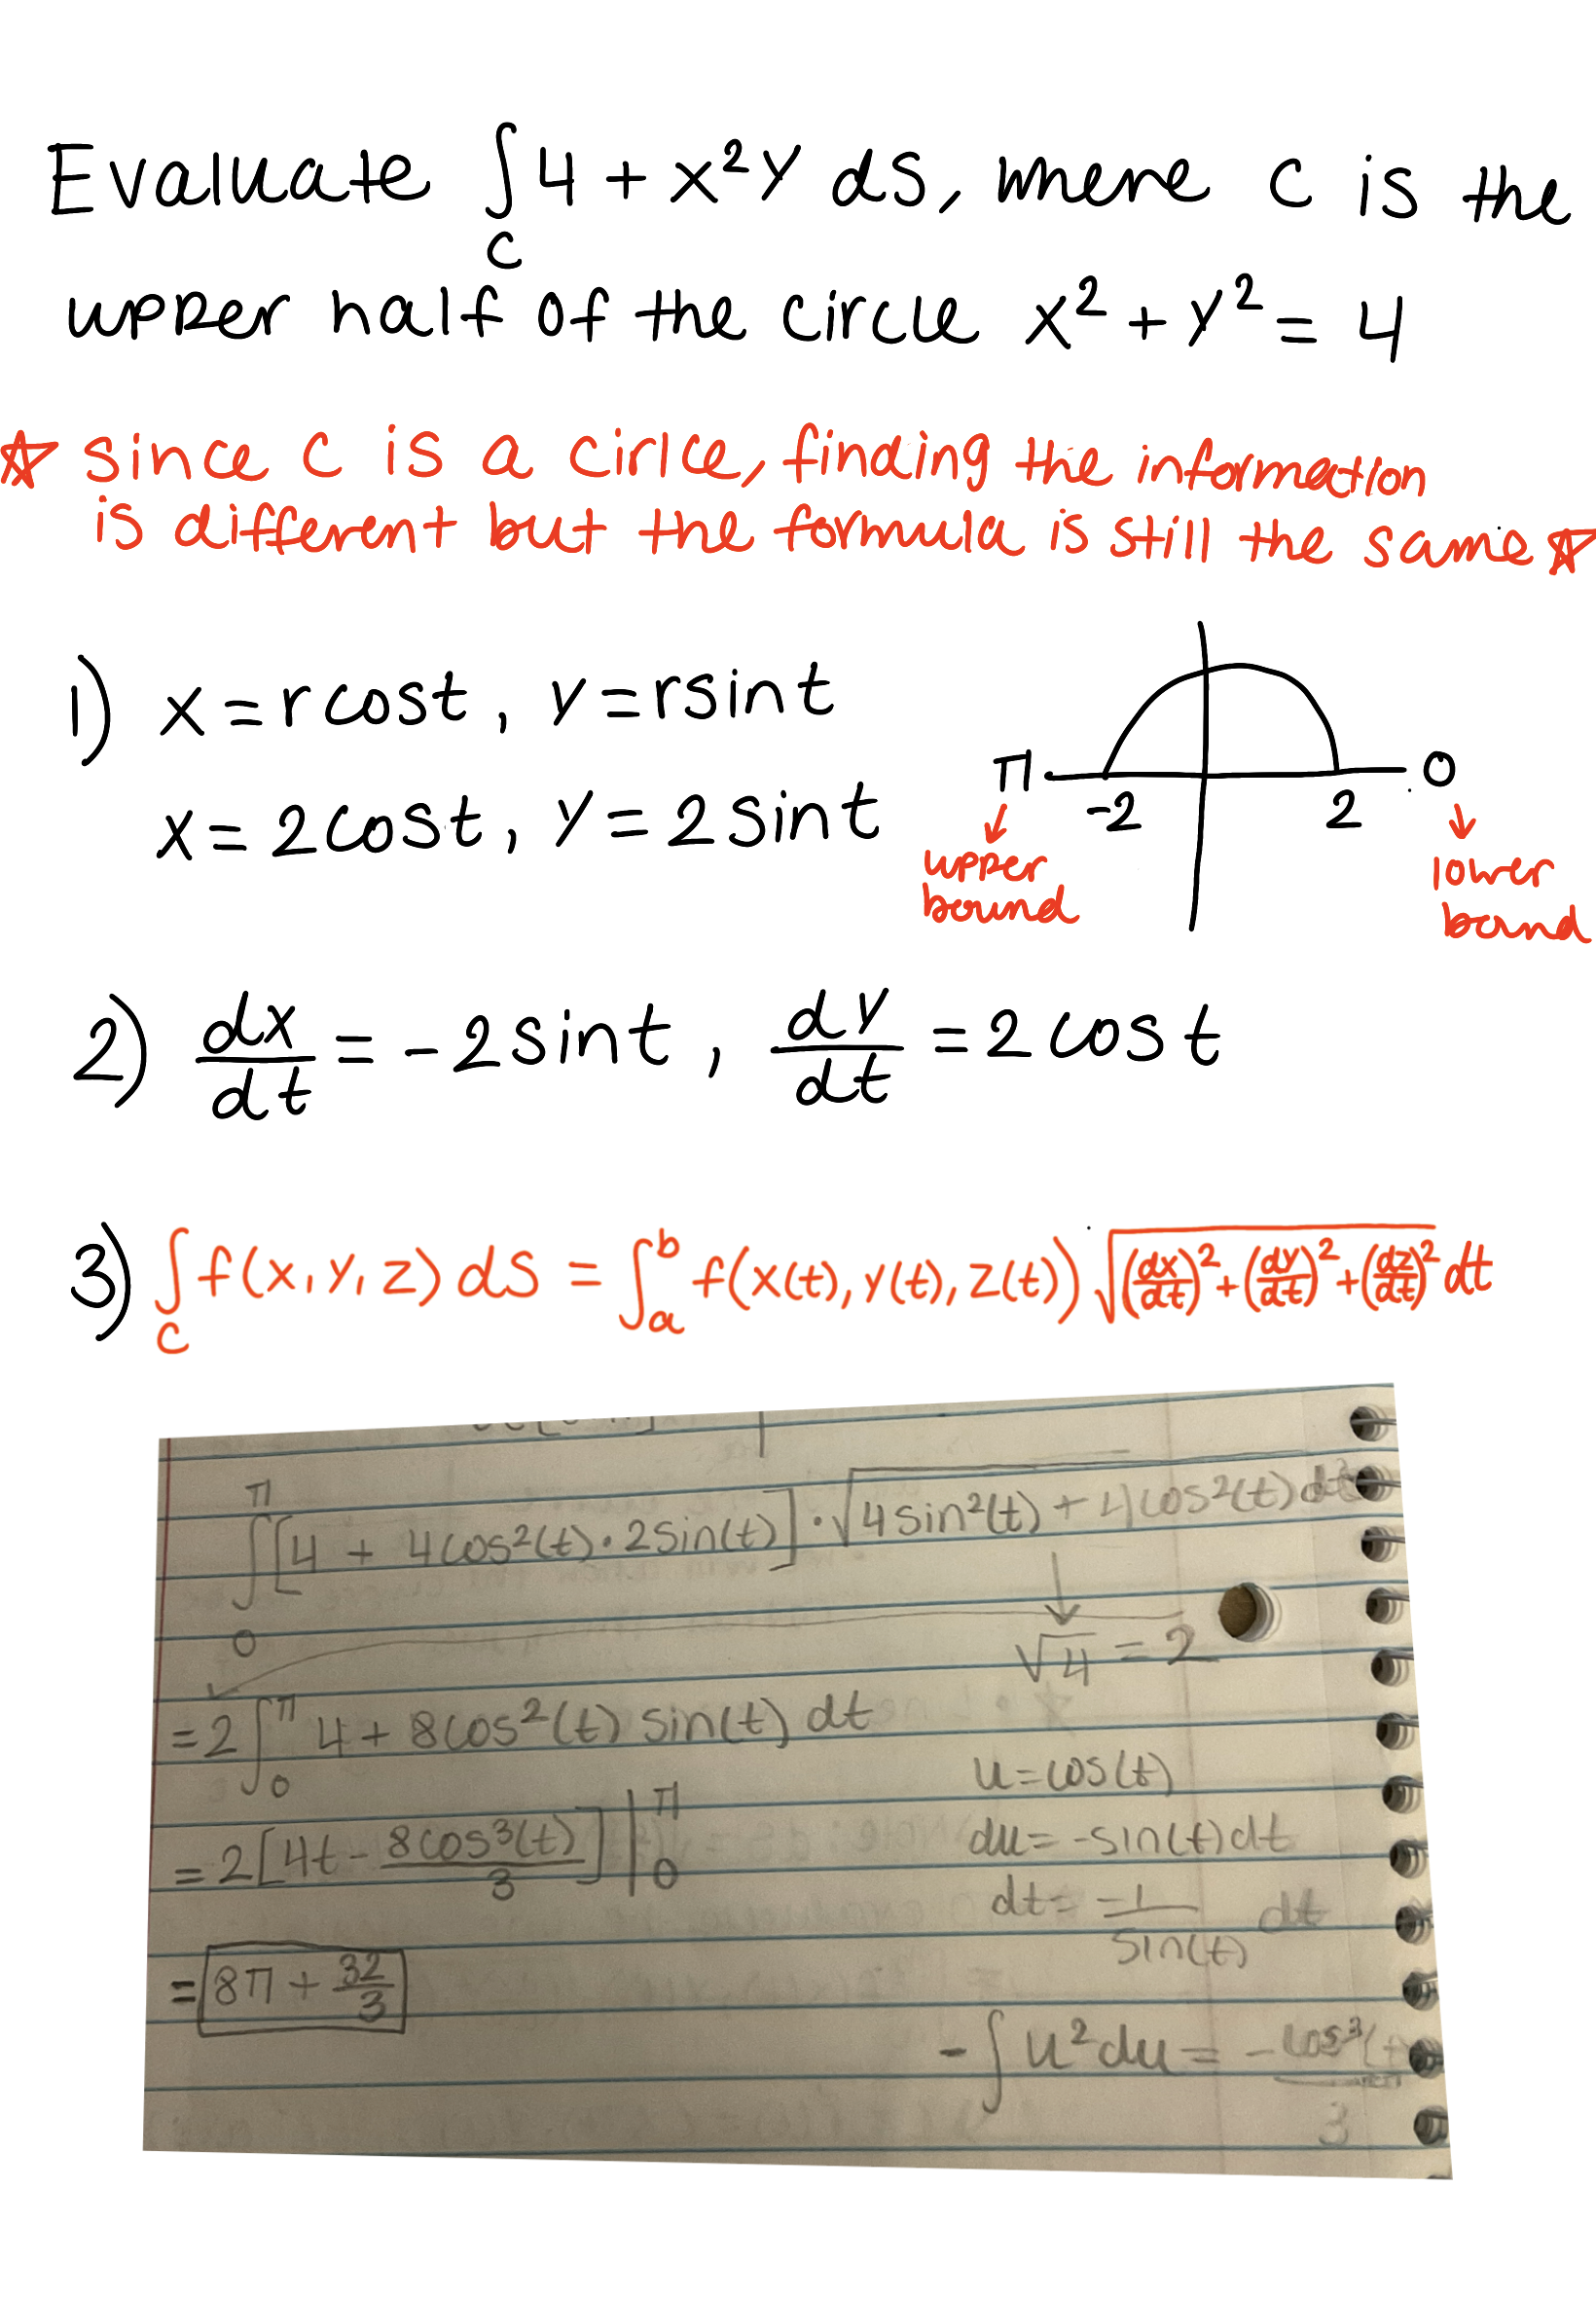 Evaluate ∫_C 4 + x²y ds, where C is the
upper half of the circle x² + y² = 4
☆ since C is a cirlce, finding the information
is different but the formula is still the same ☆
1) x = rcost, y = rsint
x = 2cost, y = 2sint
π -2 2 0
upper bound
lower bound
2) dx/dt = -2sint, dy/dt = 2cost
3) ∫_C f(x,y,z) ds = ∫_a^b f(x(t), y(t), z(t)) √((dx/dt)² + (dy/dt)² + (dz/dt)²) dt
∫_0^π [4 + 4cos²(t)·2sin(t)]·√(4sin²(t) + 4cos²(t)) dt
√4 = 2
= 2∫_0^π 4 + 8cos²(t) sin(t) dt
u = cos(t)
= 2[4t - 8cos³(t)/3]|_0^π
du = -sin(t)dt
dt = -1/sin(t) dt
= 8π + 32/3
-∫u²du = -cos³(t)/3